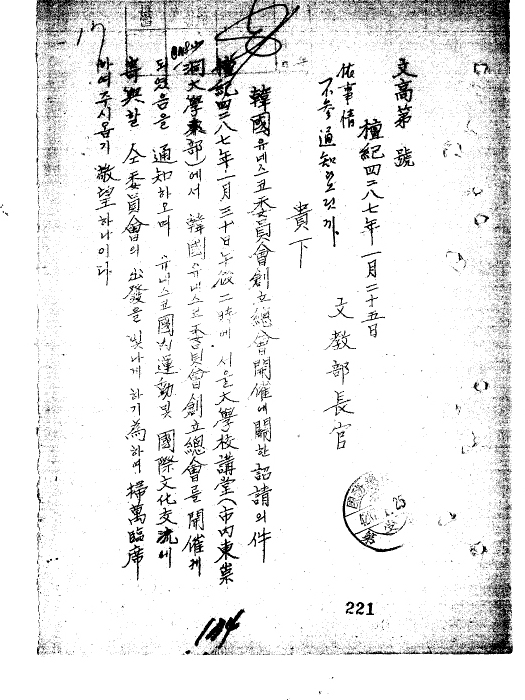 文高第 號
檀紀四二八七年 一月二十五日
文教部長官
貴下
韓國유네스코委員會創立總會開催에關한 招請의件
檀紀四二八七年一月三十日午后二時에 서울大學校講堂(市內東崇
洞大學本部)에서 韓國유네스코委員會創立總會를開催케
되였음을 通知하오며 유네스코國內運動및 國際文化交流에
寄與할 仝委員會의 出發을 빛나게 하기爲하여 掃萬臨席
하여주시옵기 敬望하나이다
17
221